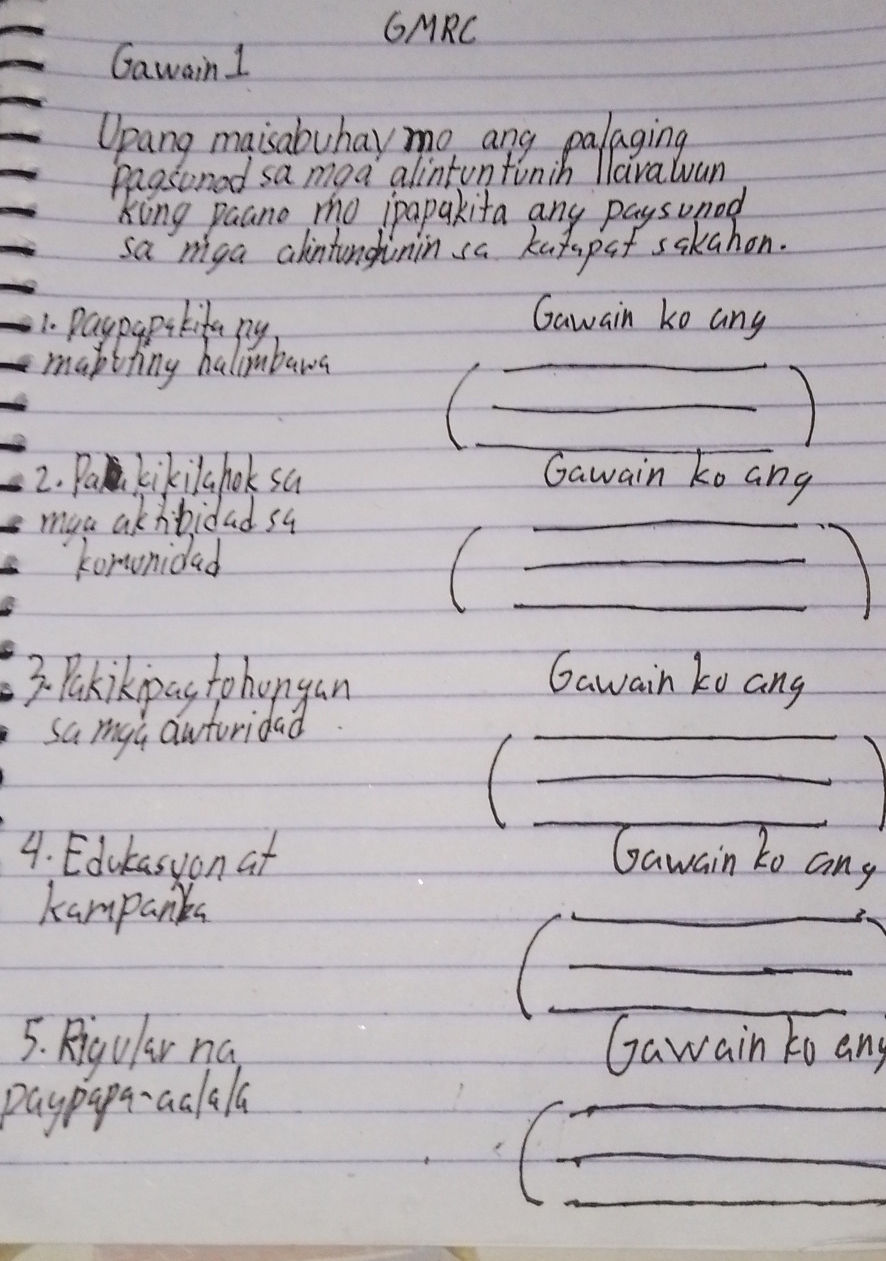 GMRC
Gawain 1
Upang maisabuhay mo ang palaging
pagsunod sa mga alintuntunin Ilarawan
kung paano mo ipapakita ang pagsunod
sa mga alintuntunin sa katapat sakahon.
1. Pagpapakita ng
mabuting halimbawa
Gawain ko ang
2. Pakikilahok sa
mga aktibidad sa
komunidad
Gawain ko ang
3. Pakikipagtohongan
sa mga awturidad
Gawain ko ang
4. Edukasyon at
kampanya
Gawain ko ang
5. Rigular na
pagpapa-aalala
Gawain ko ang